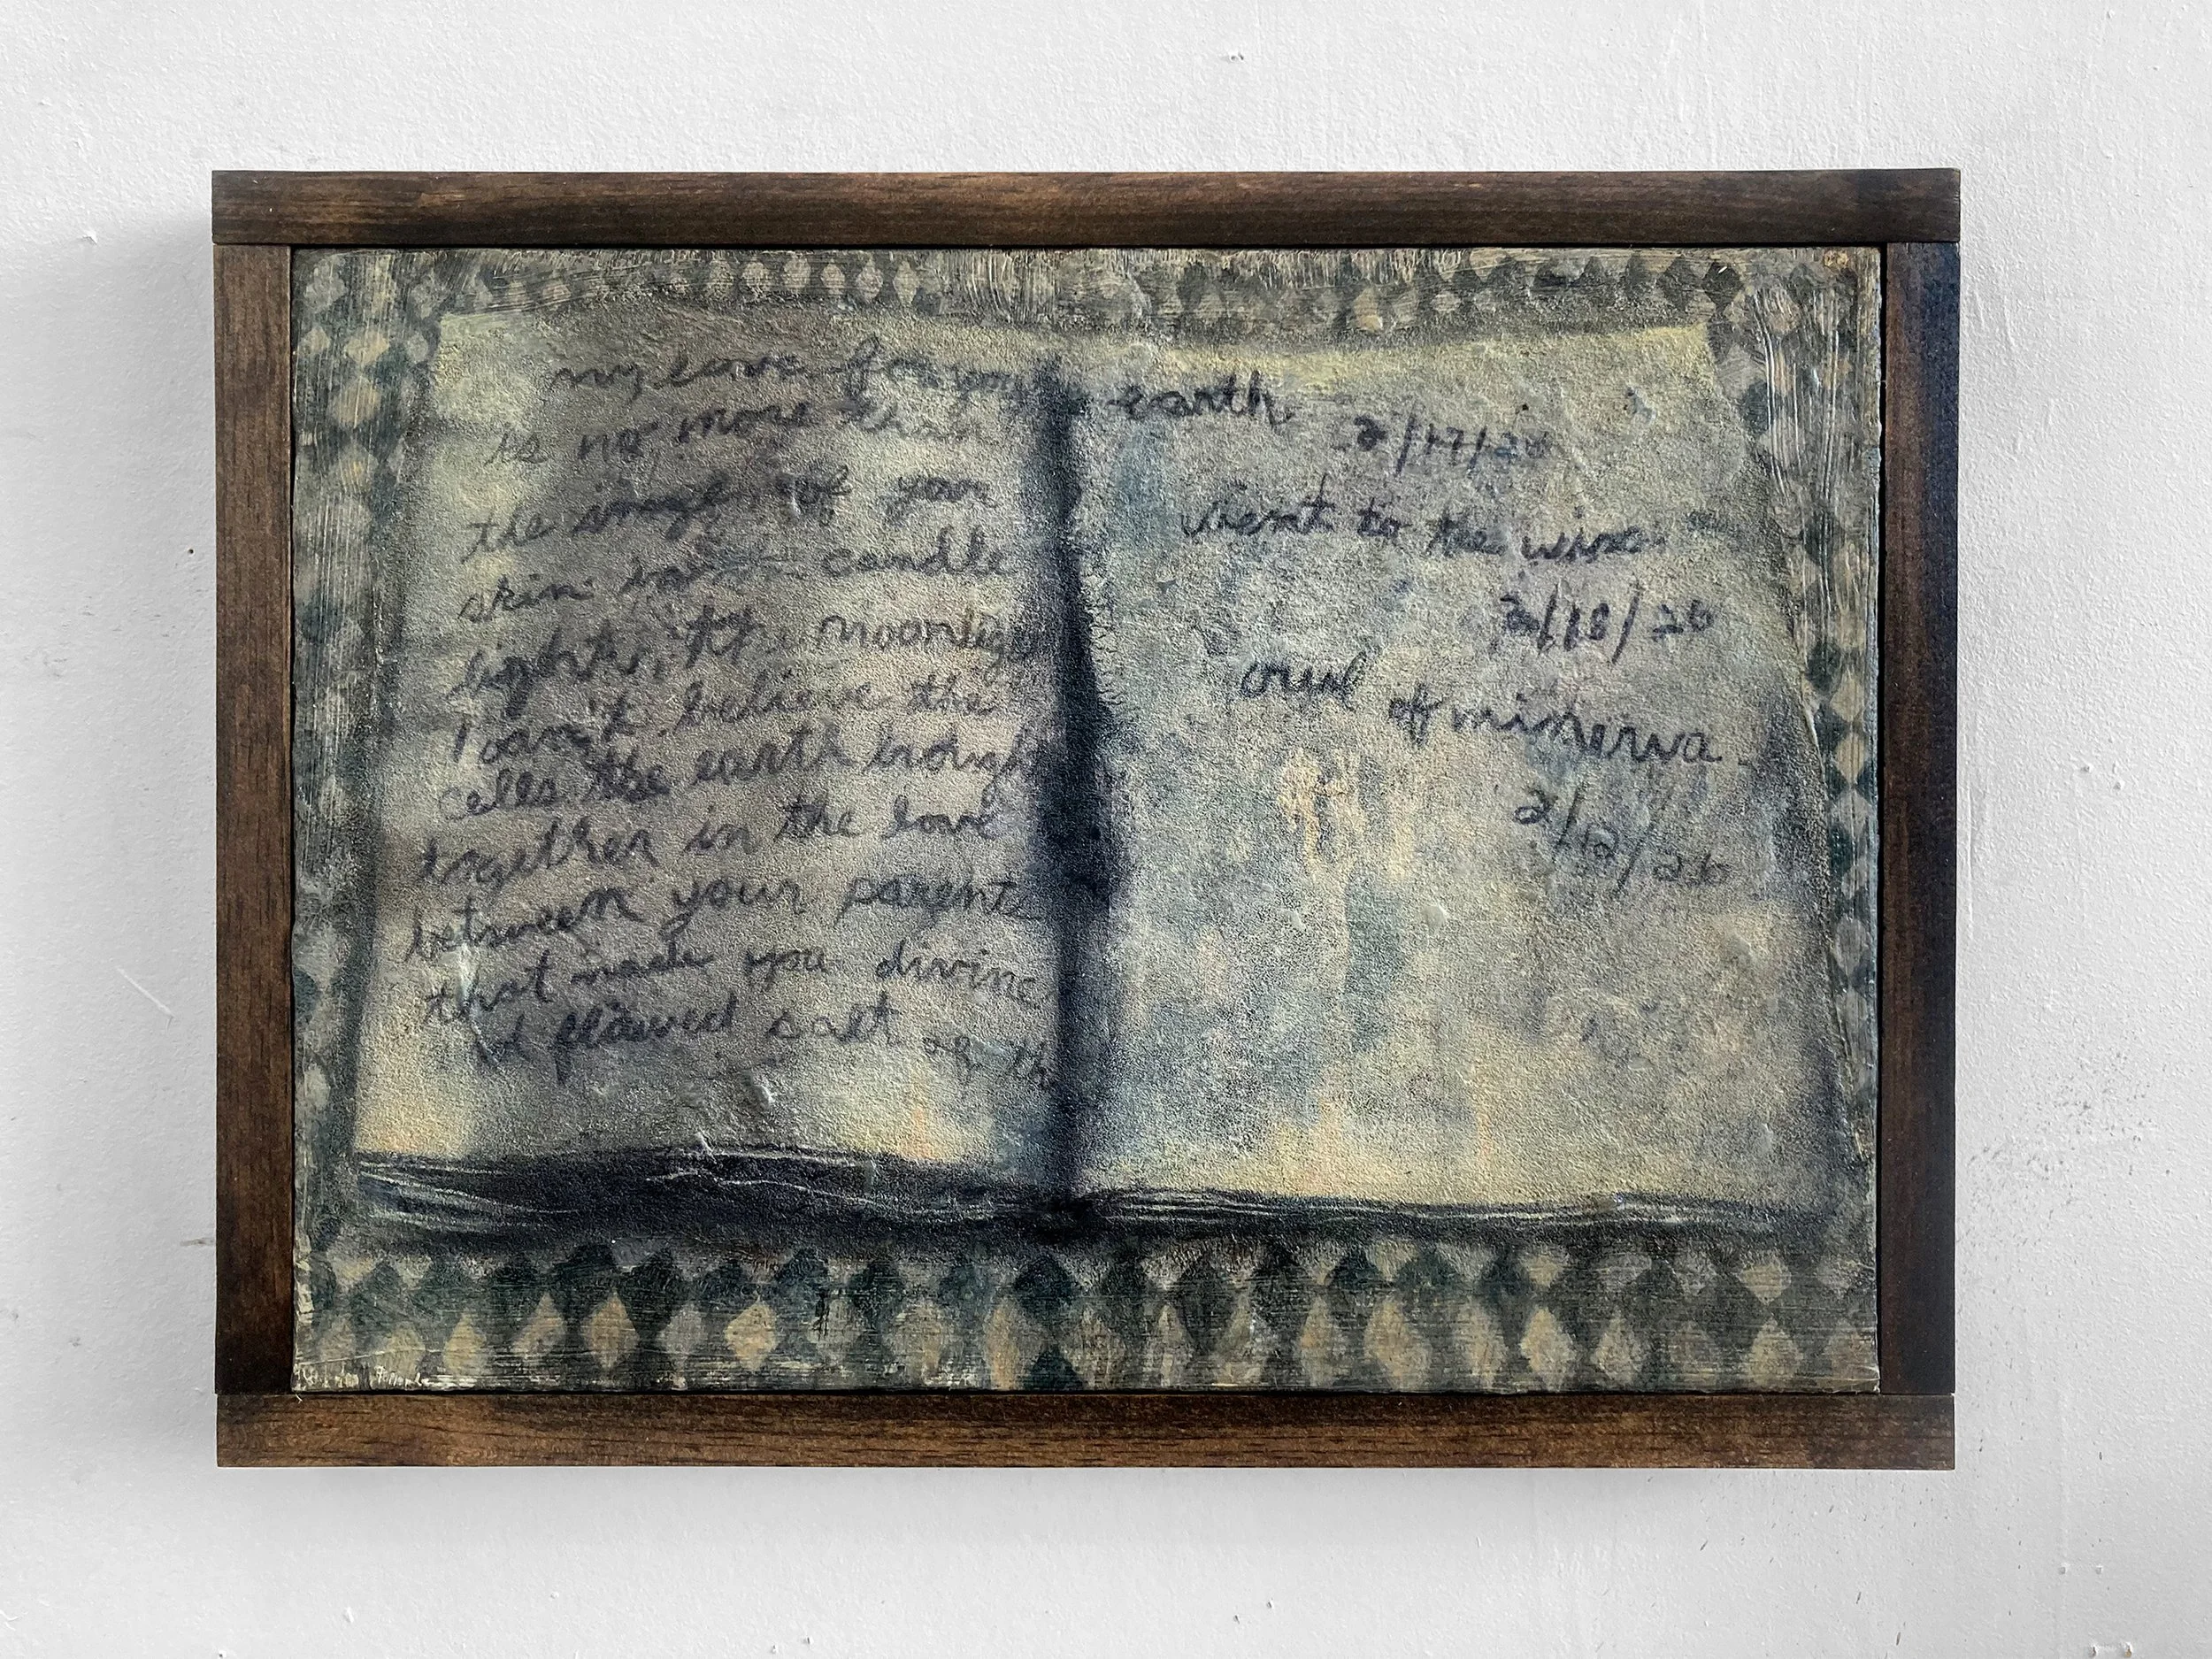 my love for you
is no more than
the image of your
skin in candle
light, by moonlight
I can't believe the
cells the earth brought
together in the love
between your parents
that made you divine
flawed salt of th
earth
2/17/26
went to the
2/18/26
owl of minerva
2/12/26